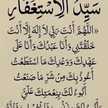 سَيِّدُ الاسْتِغْفَار
«اللَّهُمَّ أَنْتَ رَبِّي لا إِلَهَ إِلَّا أَنْتَ
خَلَقْتَنِي وَأَنَا عَبْدُكَ وَأَنَا عَلَى
عَهْدِكَ وَوَعْدِكَ مَا اسْتَطَعْتُ
أَعُوذُ بِكَ مِنْ شَرِّ مَا صَنَعْتُ